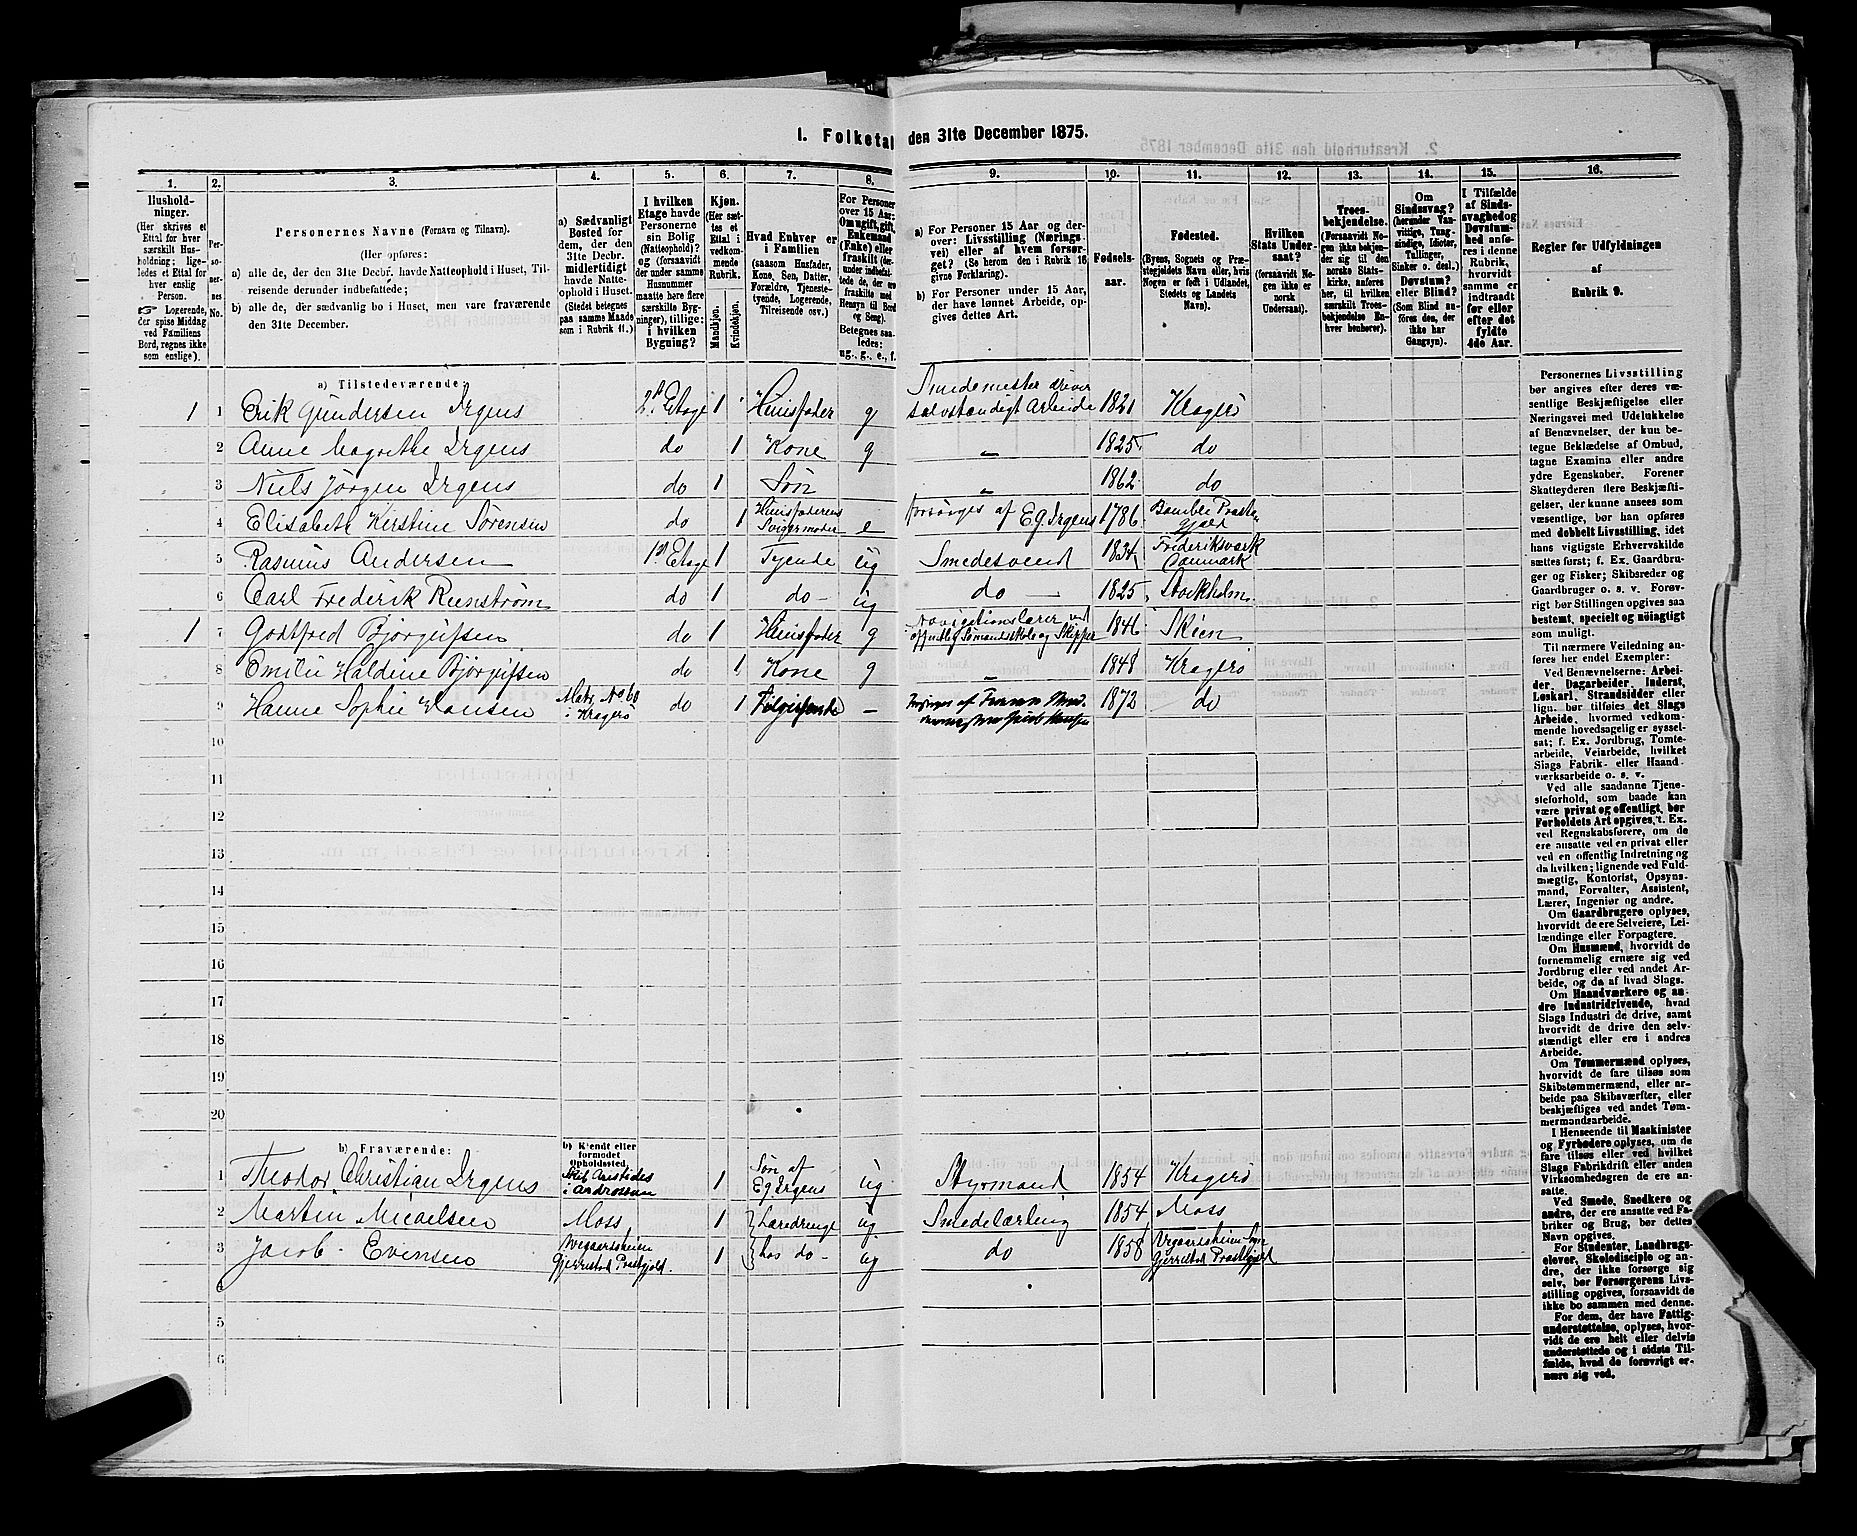 I. Folketal den 31te December 1875.
1. 2. 3. 4. 5. 6. 7. 8. 9. 10. 11. 12. 13. 14. 15. 16.
Husholdninger.
(Her skrives et
Ettal for hver
særskilt Husholdning;
ligeledes et Ettal for
hver enslig
Person.
Logerende,
der spise Middag
ved Familiens
Bord, regnes ikke
som enslige).
Personernes No.
Personernes Navne (Fornavn og Tilnavn).
(Her opføres:
a) alle de, der den 31te Decbr. havde Natteophold i Huset, Tilreisende
derunder indbefattede;
b) alle de, der sædvanlig bo i Huset, men vare fraværende
den 31te December.
a) Sædvanligt
Bosted for
dem, der den
31te Decbr.
midlertidigt
havde Natteophold
i Huset.
(Stedet betegnes
paa samme Maade
som i Rubrik 11.)
I hvilken
Etage havde
Personerne
sin Bolig
(Natteophold)?
og (forsaavidt
der under samme
Husnummer
maatte høre flere
særskilte Bygninger),
tillige:
i hvilken
Bygning?
Kjøn.
(Her sættes
et
Ettal i
vedkommende
Rubrik.
Mandkjøn.
Kvindekjøn.
Hvad Enhver er
i Familien
(saasom Husfader,
Kone, Søn, Datter,
Forældre, Tjenestetyende,
Logerende,
Tilreisende osv.)
For Personer
over 15 Aar:
Om ugift, gift,
Enkemand
(Enke) eller
fraskilt
Betegnes saaledes:
ug., g., e., f.
a) For Personer 15 Aar og derover:
Livsstilling (Næringsvei)
eller af hvem forsørget?
(Se herom den i Rubrik 16
givne Forklaring).
b) For Personer under 15 Aar,
der have lønnet Arbeide, opgives
dettes Art.
Fødselsaar.
Fødested.
(Byens, Sognets og Præstegjeldets
Navn eller, hvis
Nogen er født i Udlandet,
Stedets og Landets
Navn).
Hvilken
Stats Undersaat?
(forsaavidt Nogen
ikke er
norsk
Undersaat).
Troesbekjendelse.
(Forsaavidt Nogen
ikke bekjender
sig til den
norske Statskirke,
anføres
her, til hvilken
særskilt Troesbekjendelse
Enhver
henhører).
Om
Sindssvag?
(herunder Vanvittige,
Tungsindige,
Idioter,
Tullinger,
Sinker o. desl.)
Døvstum?
eller Blind?
(Som Blind anføres
den, der
ikke har
Gangsyn).
I Tilfælde
af Sindssvaghed
og
Døvstumhed
anføres
i denne
Rubrik,
hvorvidt
samme er
indtraadt
før eller
efter det
fyldte
4de Aar.
Regler for Udfyldningen
af
Rubrik 9.
a) Tilstedeværende:
1 1 Erik Gundersen Irgens 2den Etage 1 Huusfader g Smedemester driver selvstændigt Arbeide 1821 Kragerø
2 Anne Magrethe Irgens do 1 Kone g " 1825 do
3 Niels Jörgen Irgens do 1 Søn " 1862 do
4 Elisabeth Kirstine Sørensen do 1 Huusfaderens Svigermoder e forsörges af E G Irgens 1786 Bamble Præstegjæld
5 Rasmus Andersen 1st Etage 1 Tyende ug Smedesvend 1834 Frederiksværk Danmark
6 Carl Frederik Runström do 1 do ug do 1825 Stockholm
1 7 Godtfred Bjørgulfsen do 1 Huusfader g Navigationslærer ved offentlig Sømandsskole og Skipper 1846 Skien
8 Emilie Haldine Bjørgulfsen do 1 Kone g " 1848 Kragerø
9 Hanne Sophie Hansen Matr. No 60 i Kragerø do 1 Tilreisende – forsørges af Faderen Jacob Hansen 1872 do
10
11
12
13
14
15
16
17
18
19
20
b) Fraværende: b) Kjendt eller
formodet
Opholdssted.
1 Theodor Christian Irgens Skib Aristides i Ardrossan 1 Søn af E G Irgens ug Styrmand 1854 Kragerø
2 Martin Micaelsen Moss 1 Læredrenge ug Smedelærling 1854 Moss
3 Jacob Evensen Wegaartsheien Gjerrestad Præstgjeld. 1 hos do ug do 1858 Vegaartsheien Gjerrestad Præstgjeld
5
6
Personernes Livsstilling
bør angives efter deres væsentlige
Beskjæftigelse eller
Næringsvei med Udelukkelse
af Benævnelser, der kun betegne
Beklædelse af Ombud,
tagne Examina eller andre
ydre Egenskaber. Forener
Skatteyderen flere Beskjæftigelser,
der kunne ansees som
væsentlige, bør han opføres
med dobbelt Livsstilling, idet
hans vigtigste Erhvervskilde
sættes først; f. Ex. Gaardbruger
og Fisker; Skibsreder og
Gaardbruger o. s. v. Forøvrigt
bør Stillingen opgives saa
bestemt, specielt og nöiagtigt
som muligt.
Til nærmere Veiledning anføres
her endel Exempler:
Ved Benævnelserne: Arbeider,
Dagarbeider, Inderst,
Løskarl, Strandsidder eller
lign. bør tilføies det Slags
Arbeide, hvormed vedkommende
hovedsagelig er sysselsat;
f. Ex. Jordbrug, Tomtearbeide,
Veiarbeide, hvilket
Slags Fabrik- eller Haandværksarbeide
o. s. v.
Ved alle saadanne Tjenesteforhold,
som baade kan
være privat og offentligt, bør
Forholdets Art opgives, t. Ex.
ved Regnskabsførere, om de
ere ansatte ved en privat eller
ved en offentlig Indretning og
da hvilken; lignende ved Fuldmægtig,
Kontorist, Opsynsmand,
Forvalter, Assistent,
Lærer, Ingeniør og andre.
Om Gaardbrugere oplyses,
hvorvidt de ere Selveiere, Leilændinge
eller Forpagtere.
Om Husmænd, hvorvidt de
fornemmelig ernære sig ved
Jordbrug eller ved andet Arbeide,
og da af hvad Slags.
Om Haandværkere og andre
Industridrivende, hvad
Slags Industri de drive, samt
hvorvidt de drive den selvstændigt
eller ere i andres
Arbeide.
Om Tømmermænd oplyses,
hvorvidt de fare tilsøs som
Skibstømmermænd, eller arbeide
paa Skibsværfter, eller
beskjæftiges ved andet Tømmermandsarbeide.
I Henseende til Maskinister
og Fyrbødere oplyses, om de
fare tilsøs eller ved hvilket
Slags Fabrikdrift eller anden
Virksomhedsgren de ere ansatte.
Ved Smede, Snedkere og
andre, der ere ansatte ved Fabriker
og Brug, bør dettes
Navn opgives.
For Studenter, Landbrugselever,
Skoledisciple og andre,
der ikke forsørge sig
selv, bør Forsørgerens Livsstilling
opgives, forsaavidt de
ikke bo sammen med denne.
For dem, der have Fattigunderstøttelse,
oplyses, hvorvidt
de ere helt eller delvis
understøttede og i sidste Tilfælde,
hvad de forøvrigt ernære
sig ved.